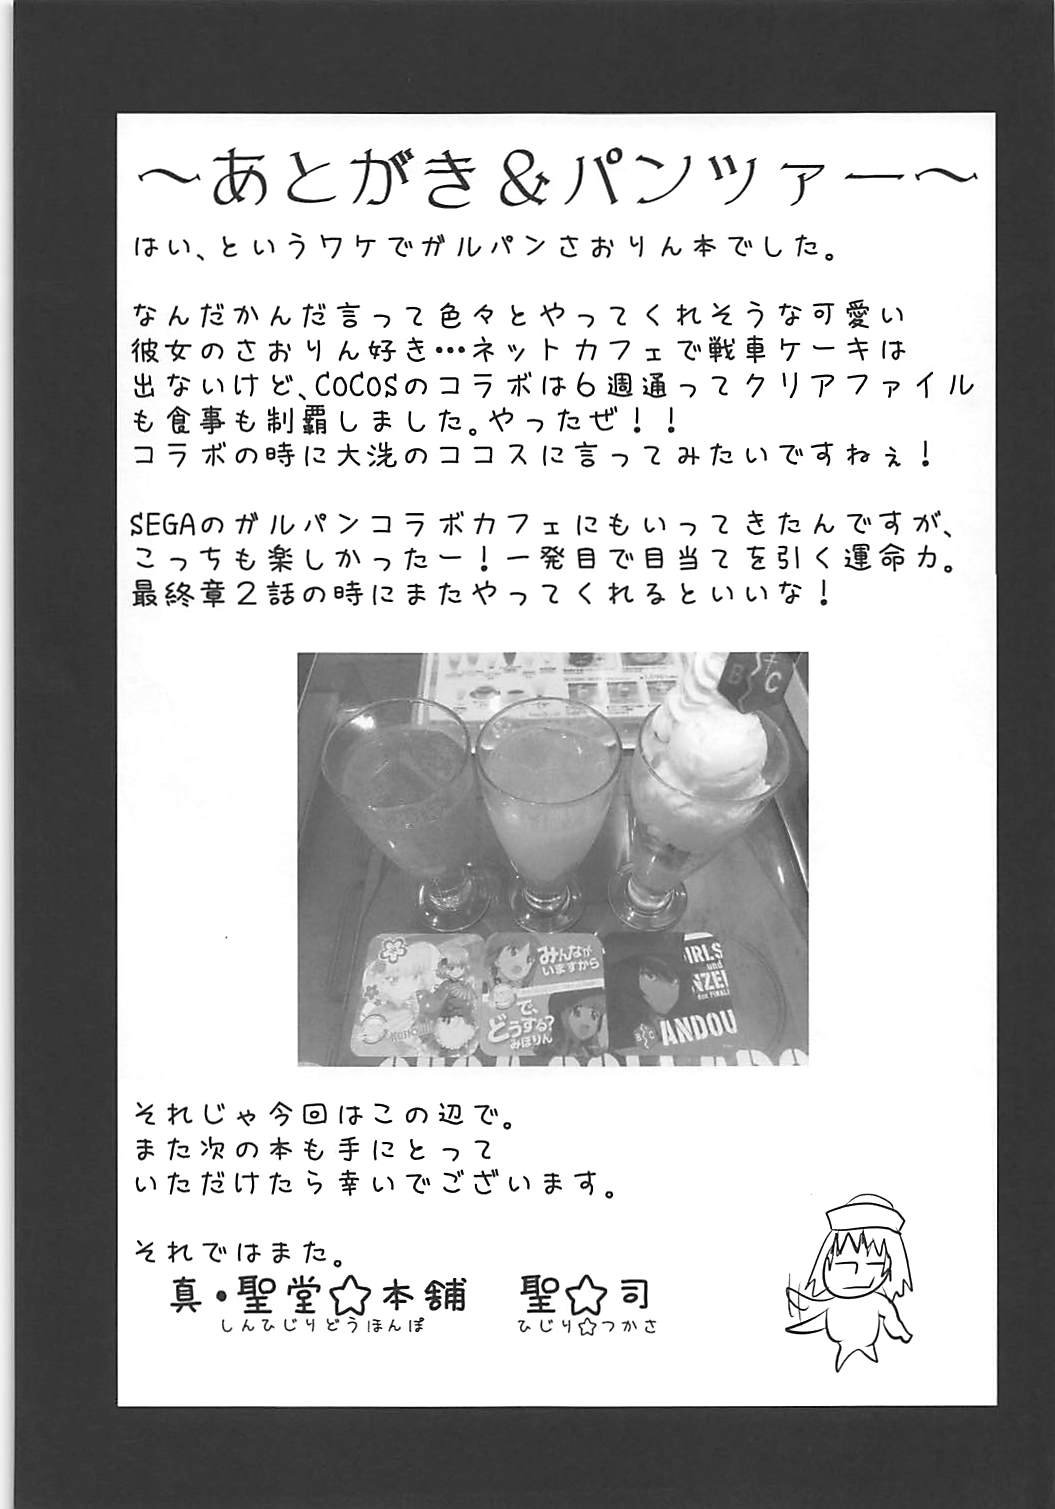 ～あとがき＆パンツァー～
はい、というワケでガルパンさおりん本でした。
なんだかんだ言って色々とやってくれそうな可愛い
彼女のさおりん好き…ネットカフェで戦車ケーキは
出ないけど、COCOSのコラボは6週通ってクリアファイル
も食事も制覇しました。やったぜ！！
コラボの時に大洗のココスに言ってみたいですねぇ！
SEGAのガルパンコラボカフェにもいってきたんですが、
こっちも楽しかったー！一発目で目当てを引く運命力。
最終章２話の時にまたやってくれるといいな！
B C
みんなが
いますから
で、
どうする?
みほりん
GIRLS
und
PANZER
das FINALE
B C
ANDOU
それじゃ今回はこの辺で。
また次の本も手にとって
いただけたら幸いでございます。
それではまた。
真・聖堂☆本舗　聖☆司
しんひじりどうほんぽ　ひじり☆つかさ